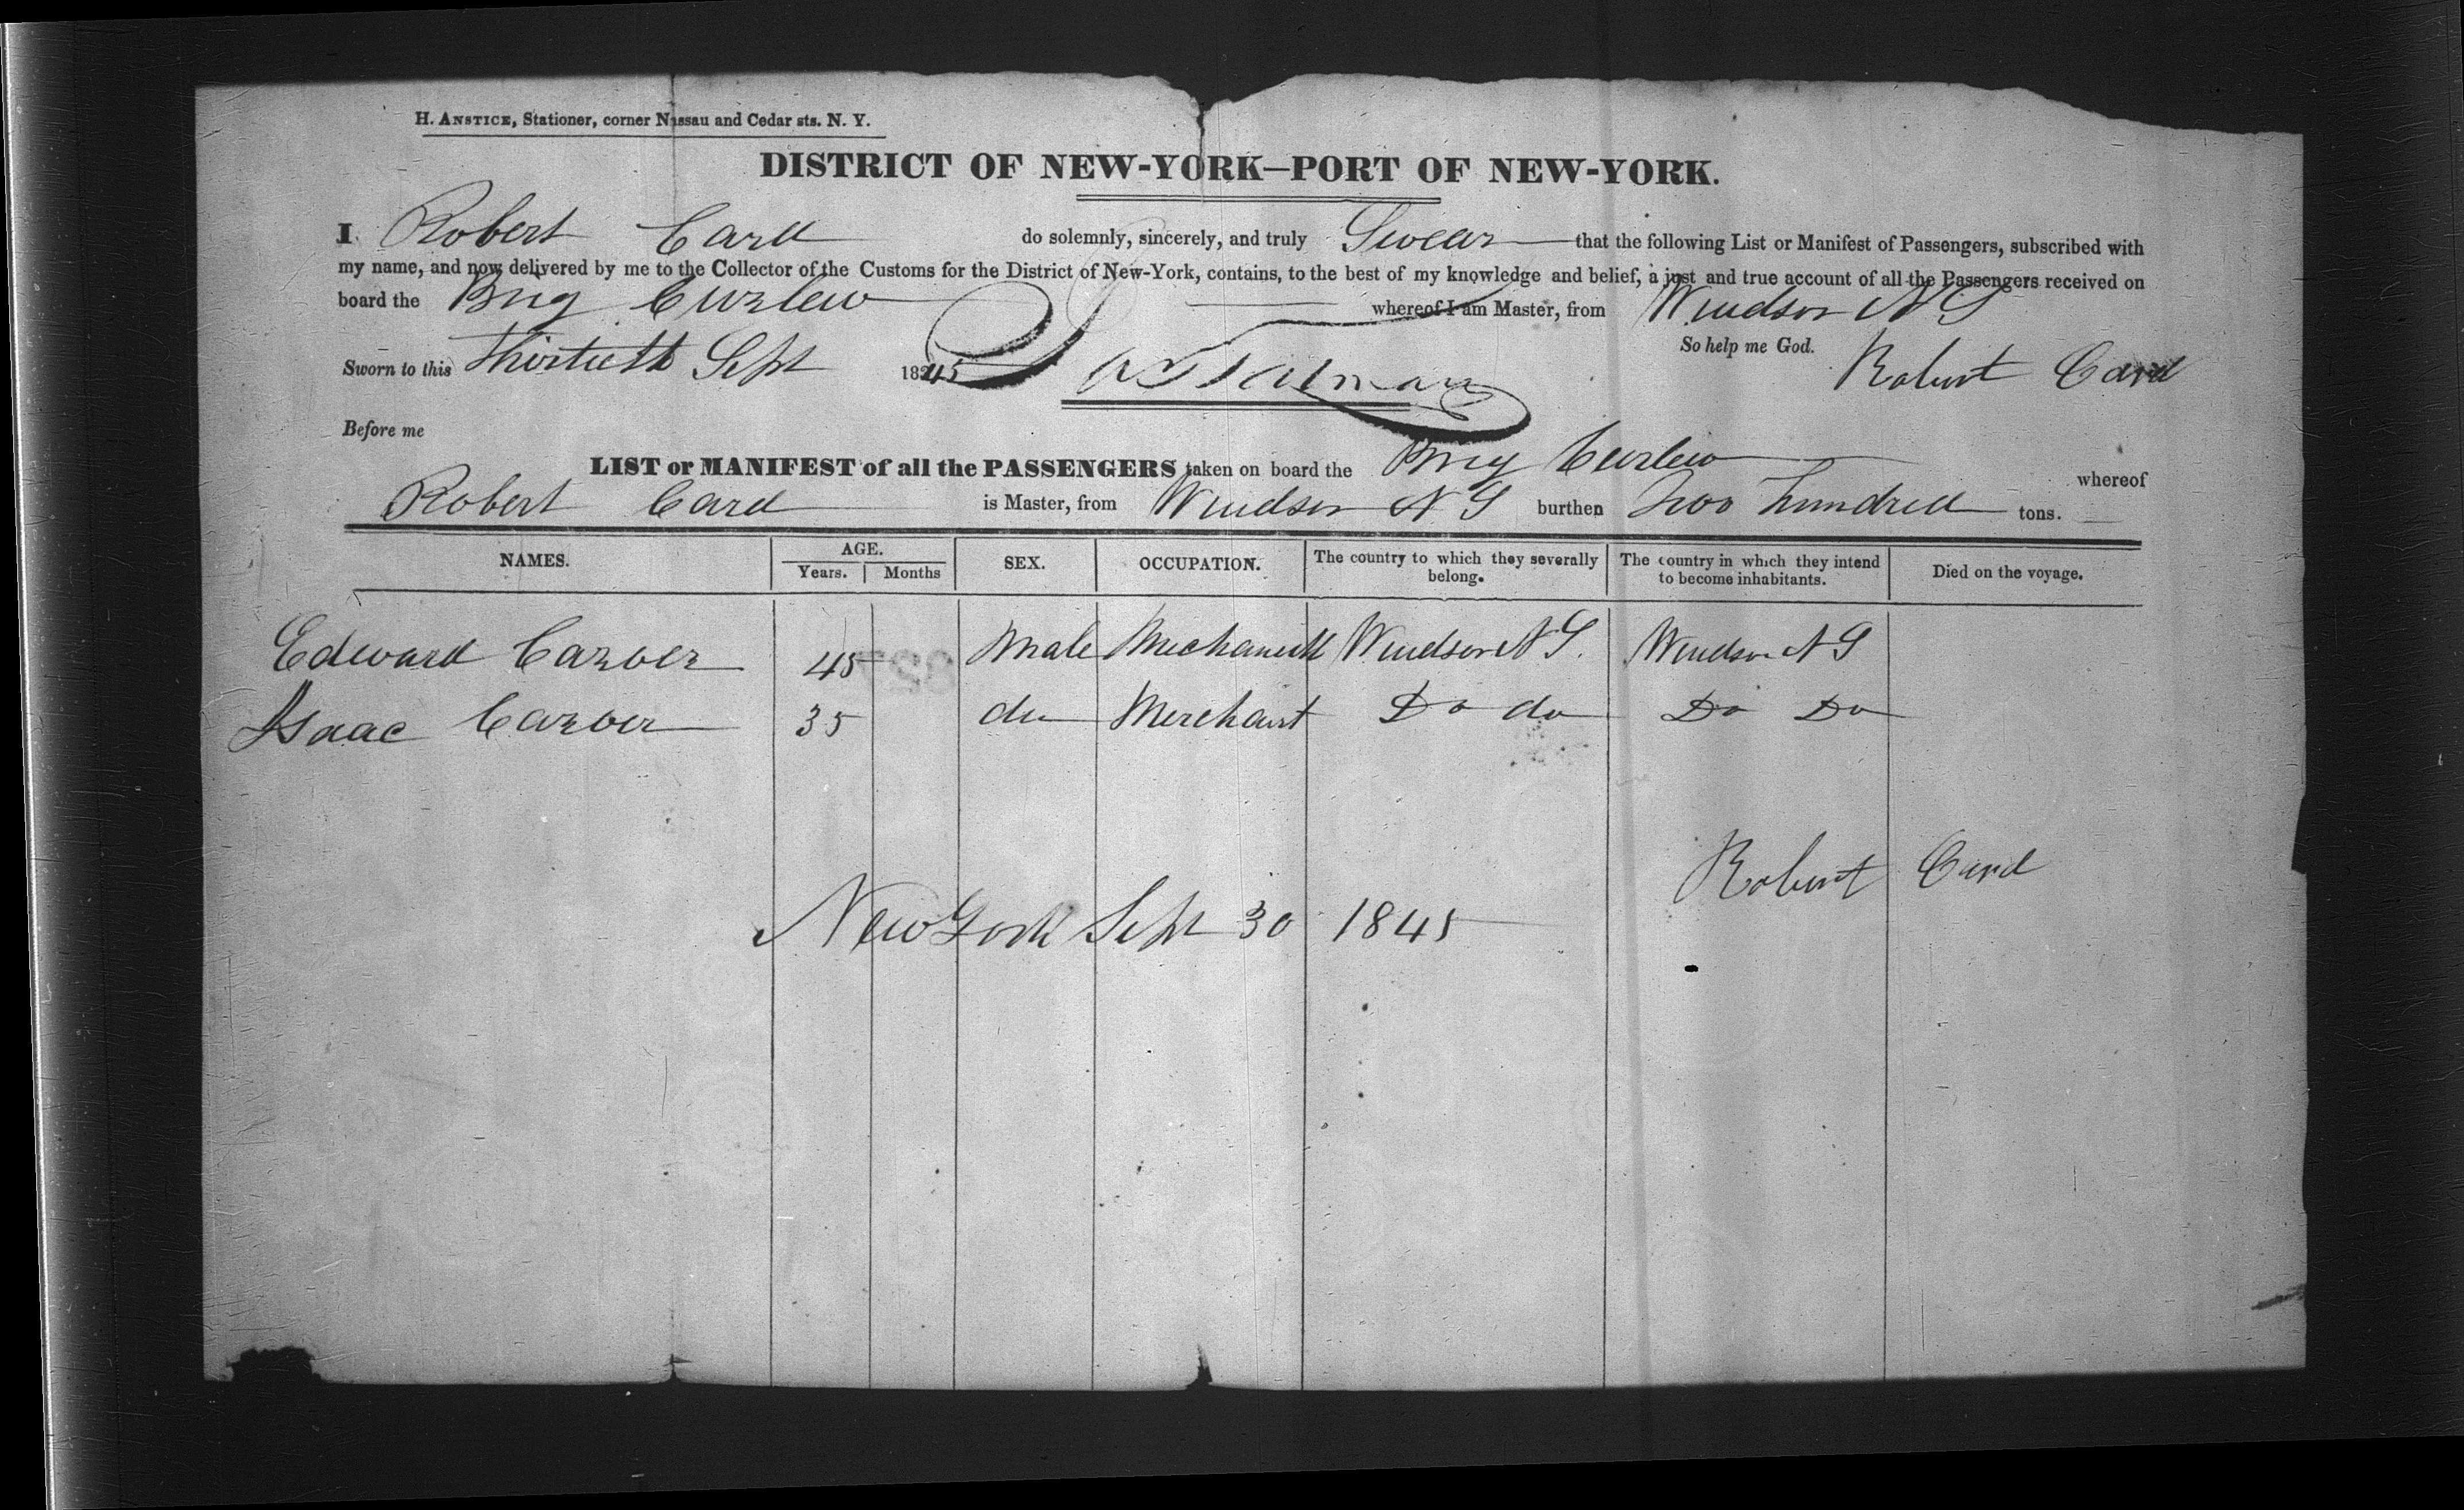 H. ANSTICE, Stationer, corner Nassau and Cedar sts. N. Y.
DISTRICT OF NEW-YORK—PORT OF NEW-YORK.
I Robert Card do solemnly, sincerely, and truly Swear that the following List or Manifest of Passengers, subscribed with
my name, and now delivered by me to the Collector of the Customs for the District of New-York, contains, to the best of my knowledge and belief, a just and true account of all the Passengers received on
board the Brig Curlew whereof I am Master, from Windsor N S
So help me God.
Sworn to this Thirtieth Sept 1845 Robert Card
Before me
LIST or MANIFEST of all the PASSENGERS taken on board the Brig Curlew whereof
Robert Card is Master, from Windsor N S burthen Two hundred tons.
NAMES. AGE. Years. Months SEX. OCCUPATION. The country to which they severally belong. The country in which they intend to become inhabitants. Died on the voyage.
Edward Carver 45 Male Mechanick Windsor N S. Windsor N S
Isaac Carver 35 do Merchant Do do Do Do
Robert Card
New York Sept 30 1845